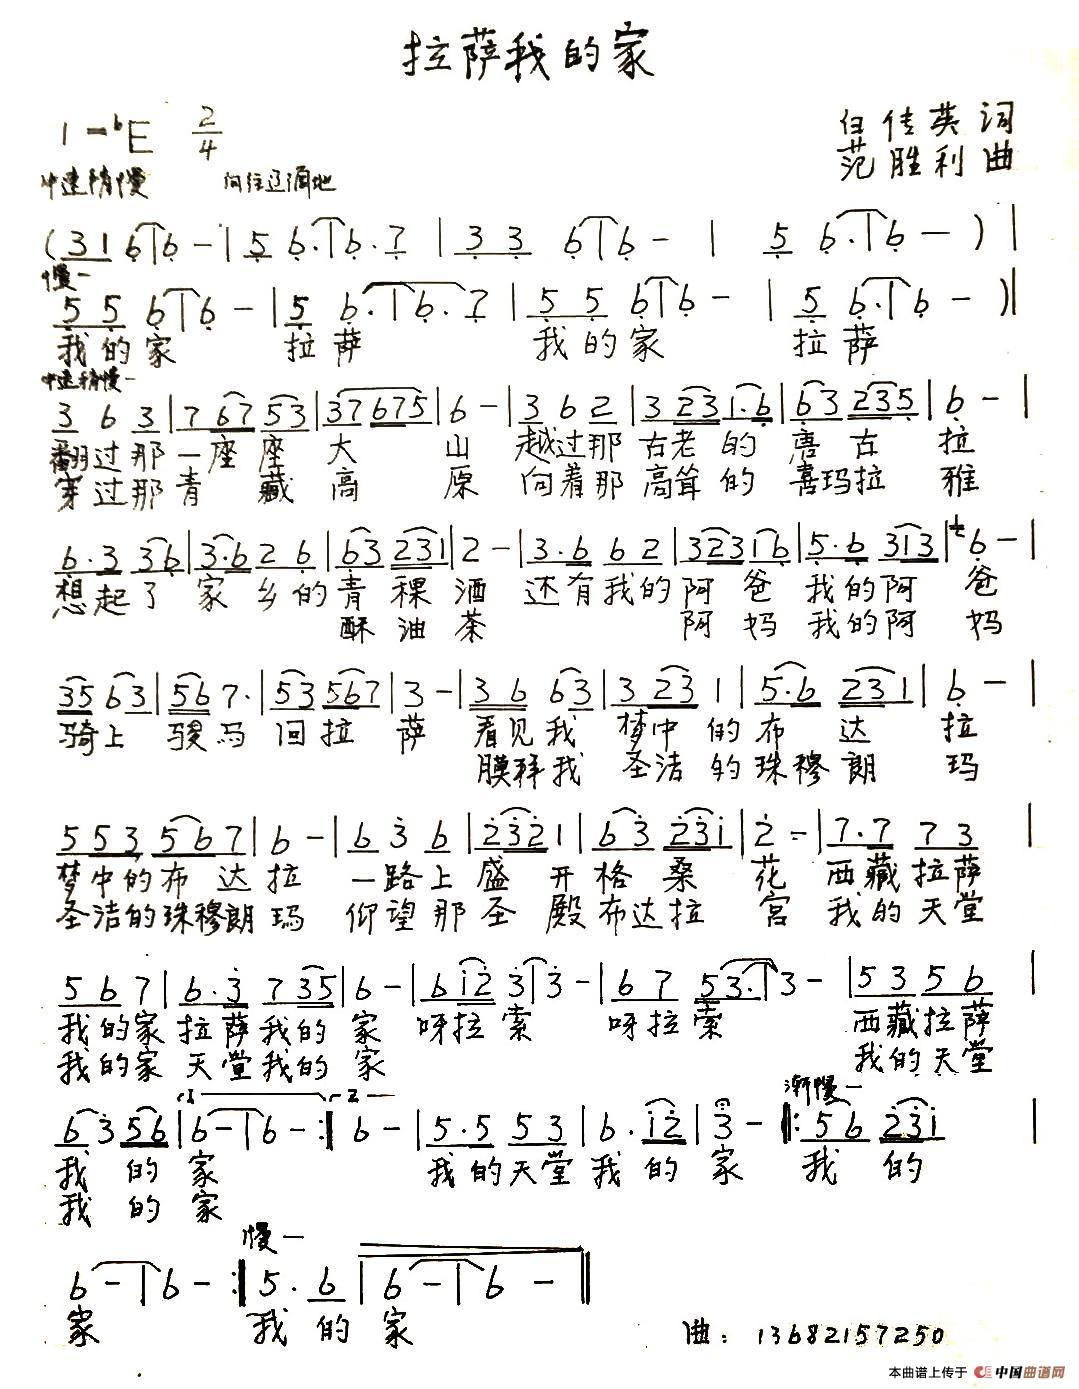 拉萨我的家
1=♭E 2/4
任传英词
范胜利曲
中速稍慢 向往辽阔地
(3 1 6 | 6 - | 5 6. | 6. 7 | 3 3 6 | 6 - | 5 6. | 6 - ) |
慢一
5 5 6 | 6 - | 5 6. | 6. 7 | 5 5 6 | 6 - | 5 6. | 6 - )|
我的家 拉萨 我的家 拉萨
中速稍慢一
3 6 3 | 7 67 53 | 37675 | 6 - | 3 6 2 | 3 23 1.6 | 63 235 | 6 - |
翻过那一座座大山 越过那古老的唐古拉
穿过那青藏高原 向着那高耸的喜玛拉雅
6.3 36 | 3.6 2 6 | 63 231 | 2 - | 3.6 6 2 | 323 16 | 5.6 313 | 6 - |
想起了家乡的青稞酒 还有我的阿爸我的阿爸
酥油茶 阿妈我的阿妈
35 63 | 56 7. | 53 567 | 3 - | 36 63 | 3 23 1 | 5.6 231 | 6 - |
骑上骏马回拉萨 看见我梦中的布达拉
膜拜我圣洁的珠穆朗玛
5 53 56 7 | 6 - | 6 3 6 | 232 1 | 6 3 231 | 2 - | 7.7 7 3 |
梦中的布达拉 一路上盛开格桑花 西藏拉萨
圣洁的珠穆朗玛 仰望那圣殿布达拉宫 我的天堂
5 6 7 | 6.3 7 35 | 6 - | 6 12 3 | 3 - | 6 7 53. | 3 - | 5 3 5 6 |
我的家拉萨我的家 呀拉索 呀拉索 西藏拉萨
我的家天堂我的家 我的天堂
1 2 渐慢一
6 3 56 | 6 - | 6 - :| 6 - | 5.5 5 3 | 6. 12 | 3 - |: 5 6 231 |
我的家 我的天堂我的家 我的
我的家
慢一
6 - | 6 - :| 5. 6 | 6 - | 6 - ||
家 我的家
曲：13682157250
本曲谱上传于 中国曲谱网